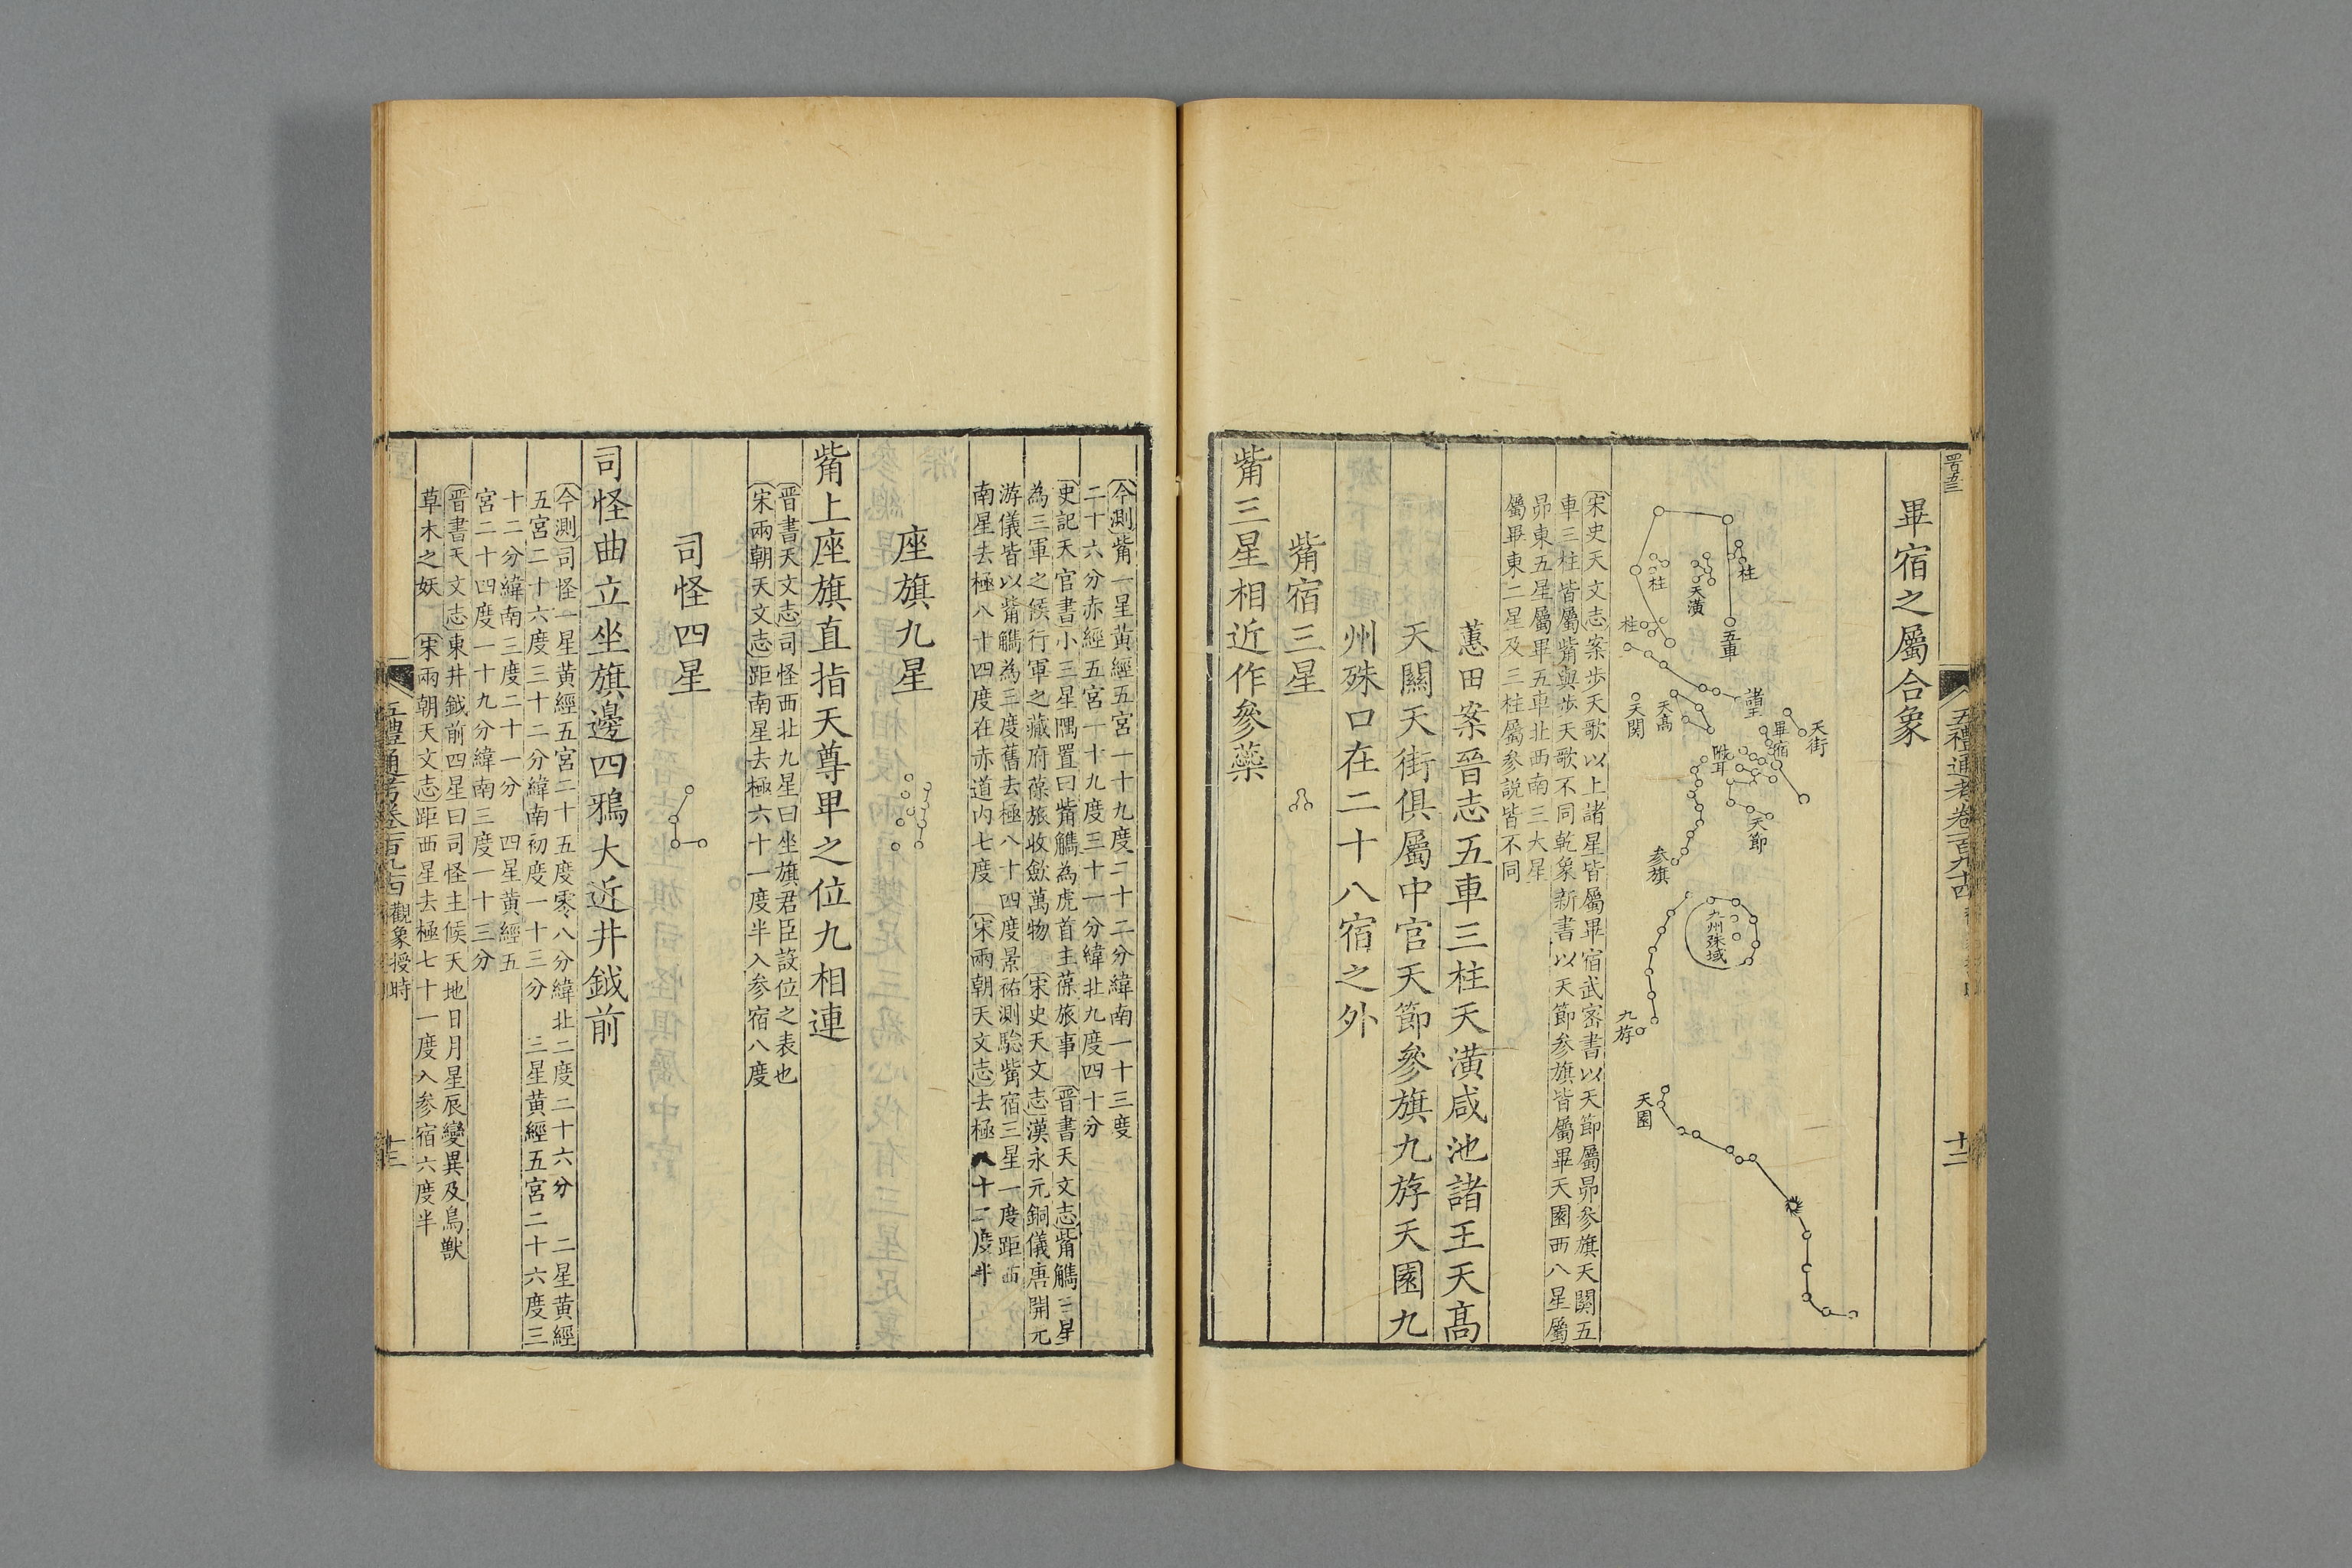 五禮通考卷一百九十四
十二
畢宿之屬合象
柱
柱
柱
天潢
五車
諸王
天高
天関
天街
畢宿
附耳
天節
参旗
九州殊域
九斿
天園
宋史天文志案步天歌以上諸星皆屬畢宿武密書以天節屬昴參旗天關五
車三柱皆屬觜與步天歌不同乾象新書以天節参旗皆屬畢天園西八星屬
昴東五星屬畢五車北西南三大星
屬畢東二星及三柱屬參說皆不同
蕙田案晉志五車三柱天潢咸池諸王天高
天關天街俱屬中官天節參旗九斿天園九
州殊口在二十八宿之外
觜宿三星
觜三星相近作參蘂
今測觜一星黃經五宮一十九度二十二分緯南一十三度
二十六分赤經五宮一十九度三十一分緯北九度四十分
史記天官書小三星隅置曰觜觿為虎首主葆旅事 晉書天文志觜觿三星
為三軍之候行軍之藏府葆旅收斂萬物 宋史天文志漢永元銅儀唐開元
游儀皆以觜觿為三度舊去極八十四度景祐測驗觜宿三星一度距西
南星去極八十四度在赤道内七度 宋兩朝天文志去極八十二度半
座旗九星
觜上座旗直指天尊卑之位九相連
晉書天文志司怪西北九星曰坐旗君臣設位之表也
宋兩朝天文志距南星去極六十一度半入參宿八度
司怪四星
司怪曲立坐旗邊四鴉大近井鉞前
今測司怪一星黃經五宮二十五度零八分緯北二度二十六分 二星黃經
五宮二十六度三十二分緯南初度一十三分 三星黃經五宮二十六度三
十二分緯南三度二十一分 四星黃經五
宮二十四度一十九分緯南三度一十三分
晉書天文志東井鉞前四星曰司怪主候天地日月星辰變異及鳥獸
草木之妖 宋兩朝天文志距西星去極七十一度入参宿六度半
五禮通考卷一百九十四 觀象授時
十三